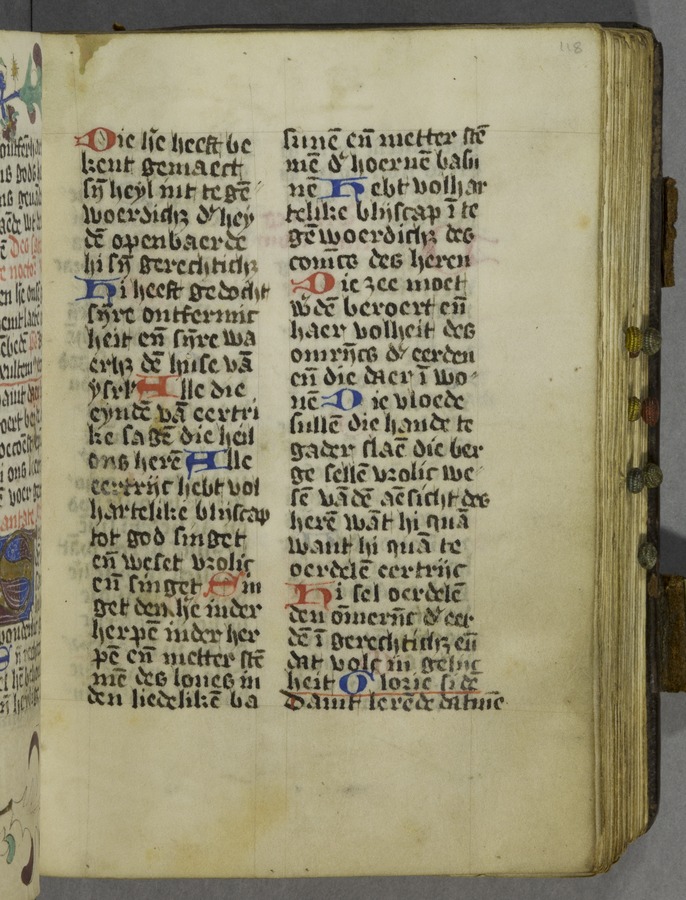 118
Die h̄e heeft be
kent gemaect
sȳ heyl int tegē
woerdichz d' hey
dē openbaerde
hi sȳ gerechtichz
Hi heeft gedocht
sȳre ontfermic
heit eñ sȳre wa
erhz dē huse vā
ysrl' Alle die
eyndē vā eertri
ke sagē die heil
ons herē Alle
eertrijc hebt vol
hartelike blijscap
tot god singet
eñ weset vrolic
eñ singet Sin
get den h̄e in der
herpē in der her
pē eñ metter stē
men des loues in
den liedelikē ba
sunē eñ metter stē
mē d' hoernē basu
nē Hebt volhar
telike blijscap ī te
gēwoerdichz des
conīcs des heren
Die zee moet
w'dē beroert eñ
haer volheit des
omrijcs d' eerden
eñ die daer ī wo
nē Die vloede
sullē die hande te
gader slaē die ber
ge sellē vrolic we
sē vā dē aēsicht des
herē wāt hi quā
want hi quā te
oerdelē eertrijc
Hi sel oerdelē
den ōmerīc d' eer
dē ī gerechtichz eñ
dat volc in gelijc
heit Glorie si dē